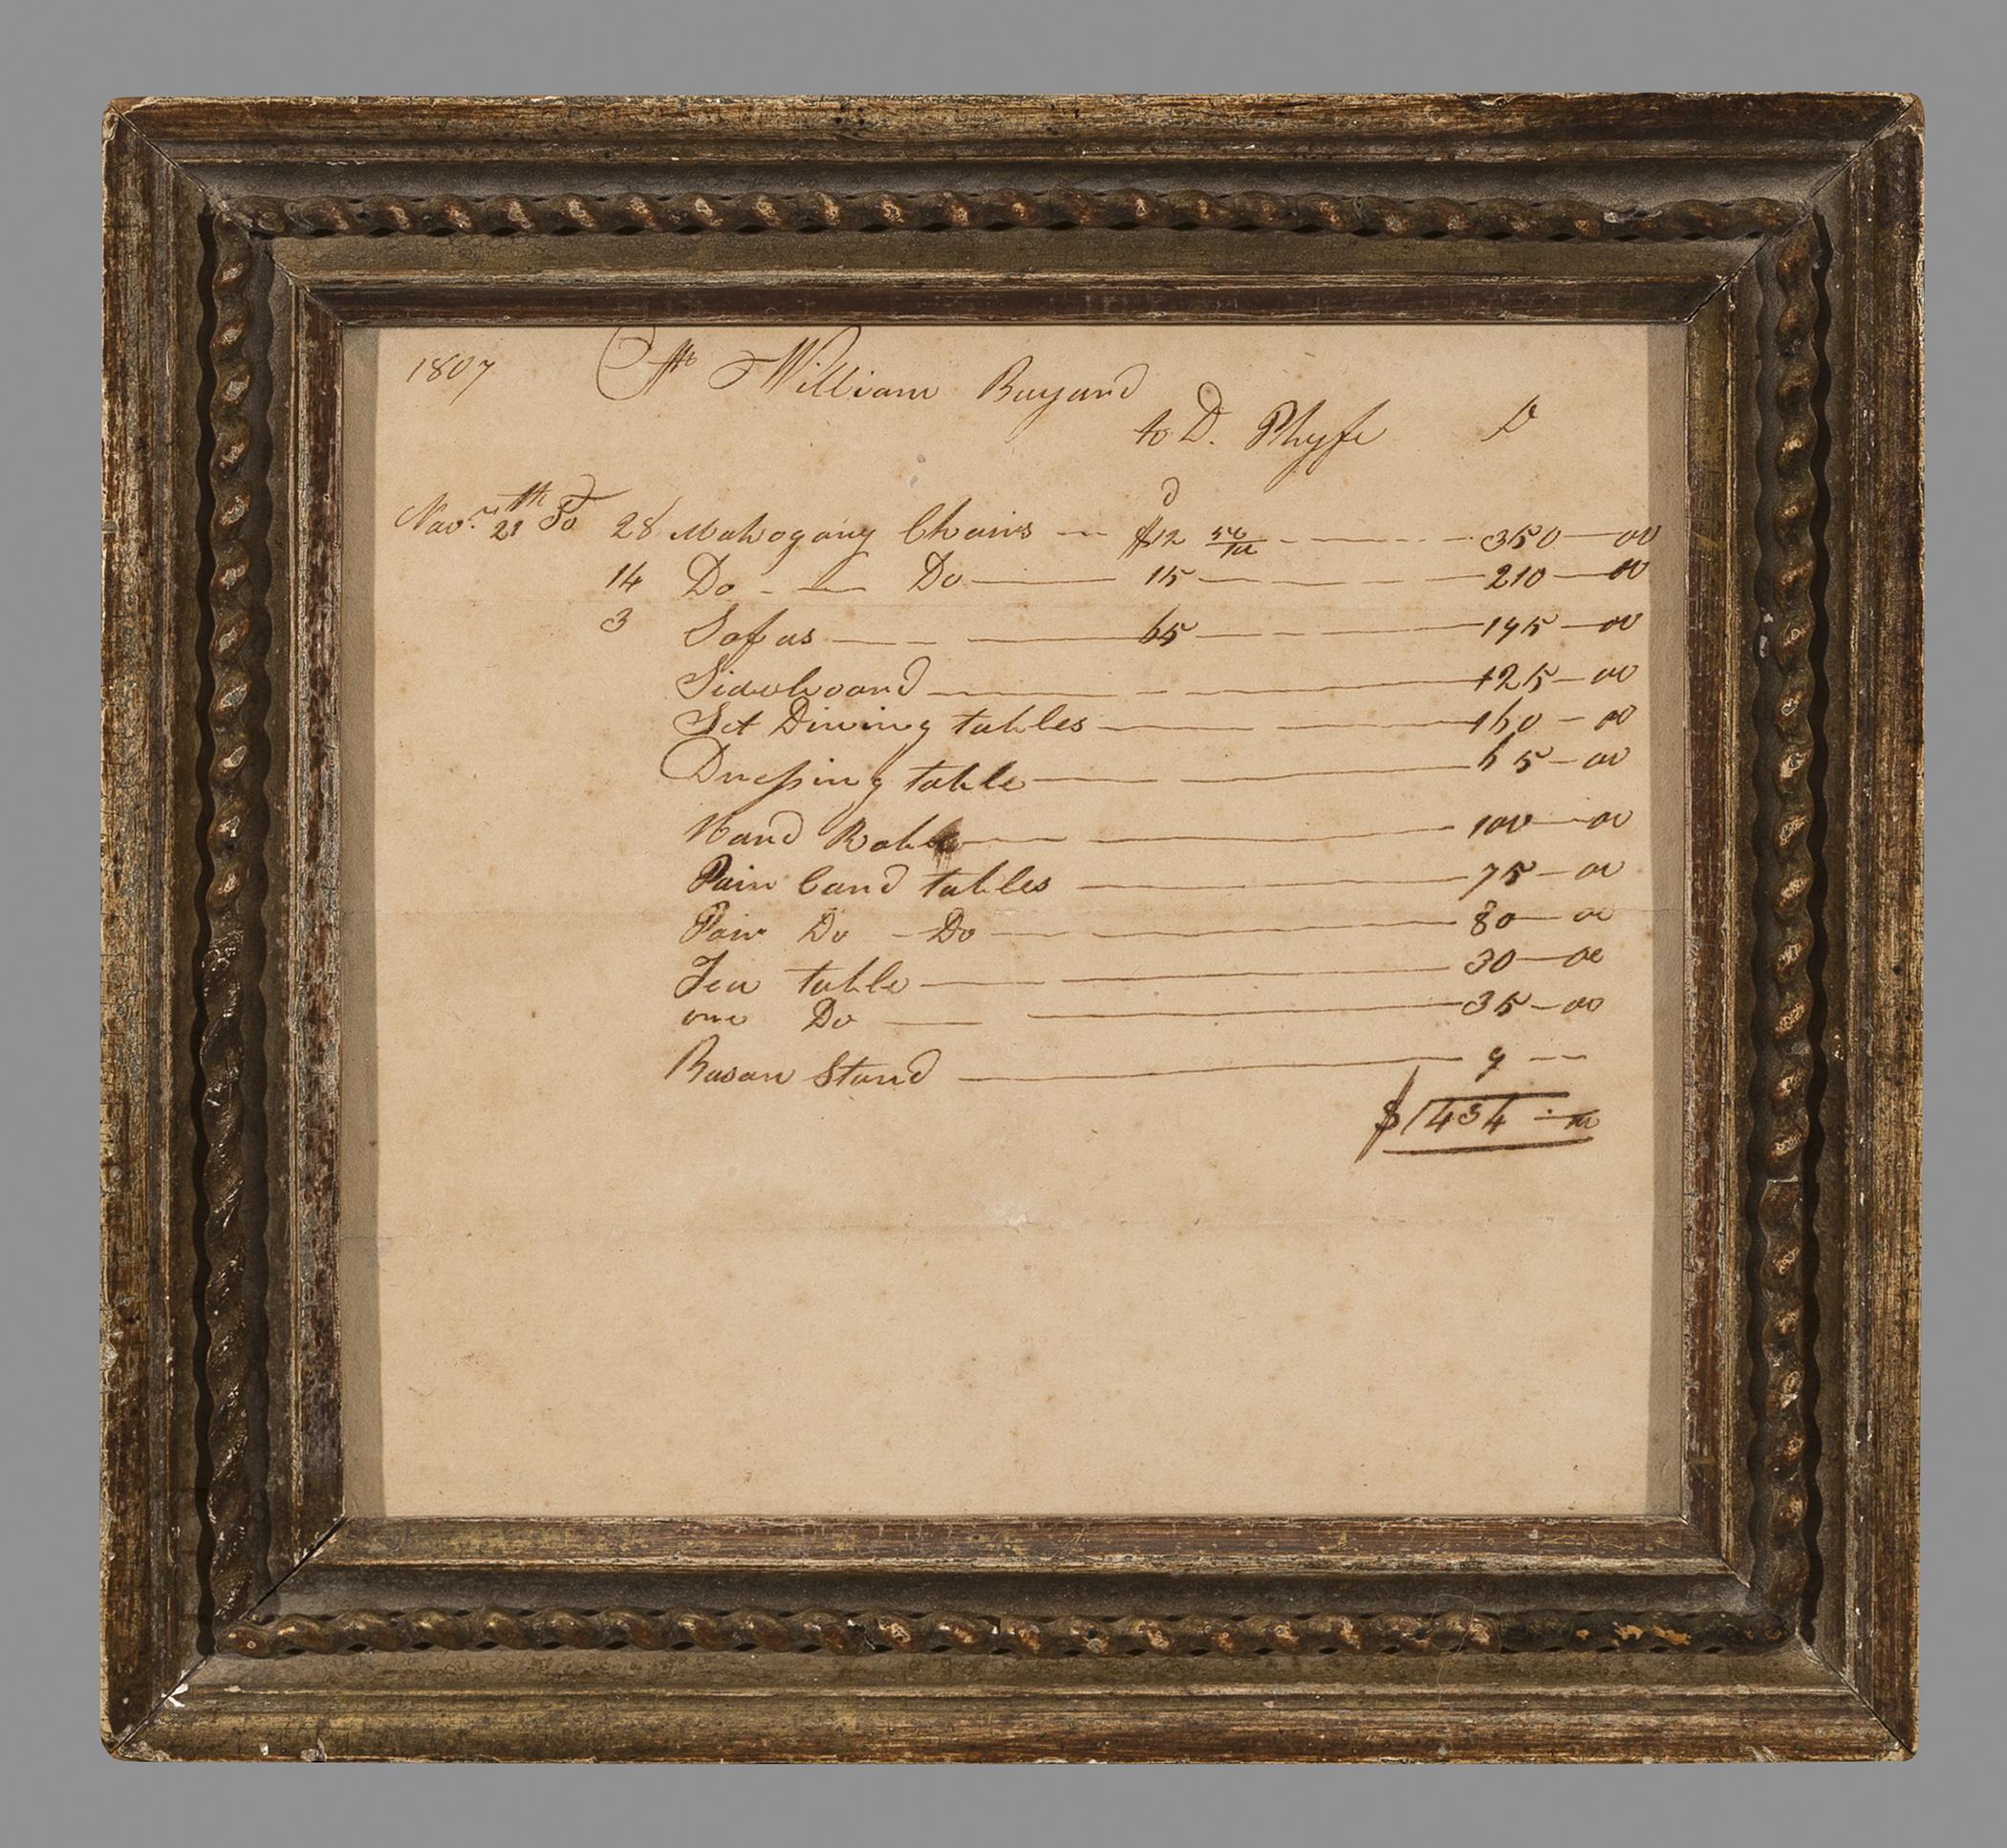 1807 Mr William Bayard
to D. Phyfe Dr
Novr 21th To 28 Mahogany Chairs $12 50/100 350—00
14 Do Do 15 210—00
3 Sofas 65 195—00
Sideboard 125—00
Set Dining tables 160—00
Dressing table 65—00
100—00
Pair Card tables 75—00
Pair Do Do 80—00
Tea table 30—00
one Do 35—00
Bason Stand 9 —
$1434—00